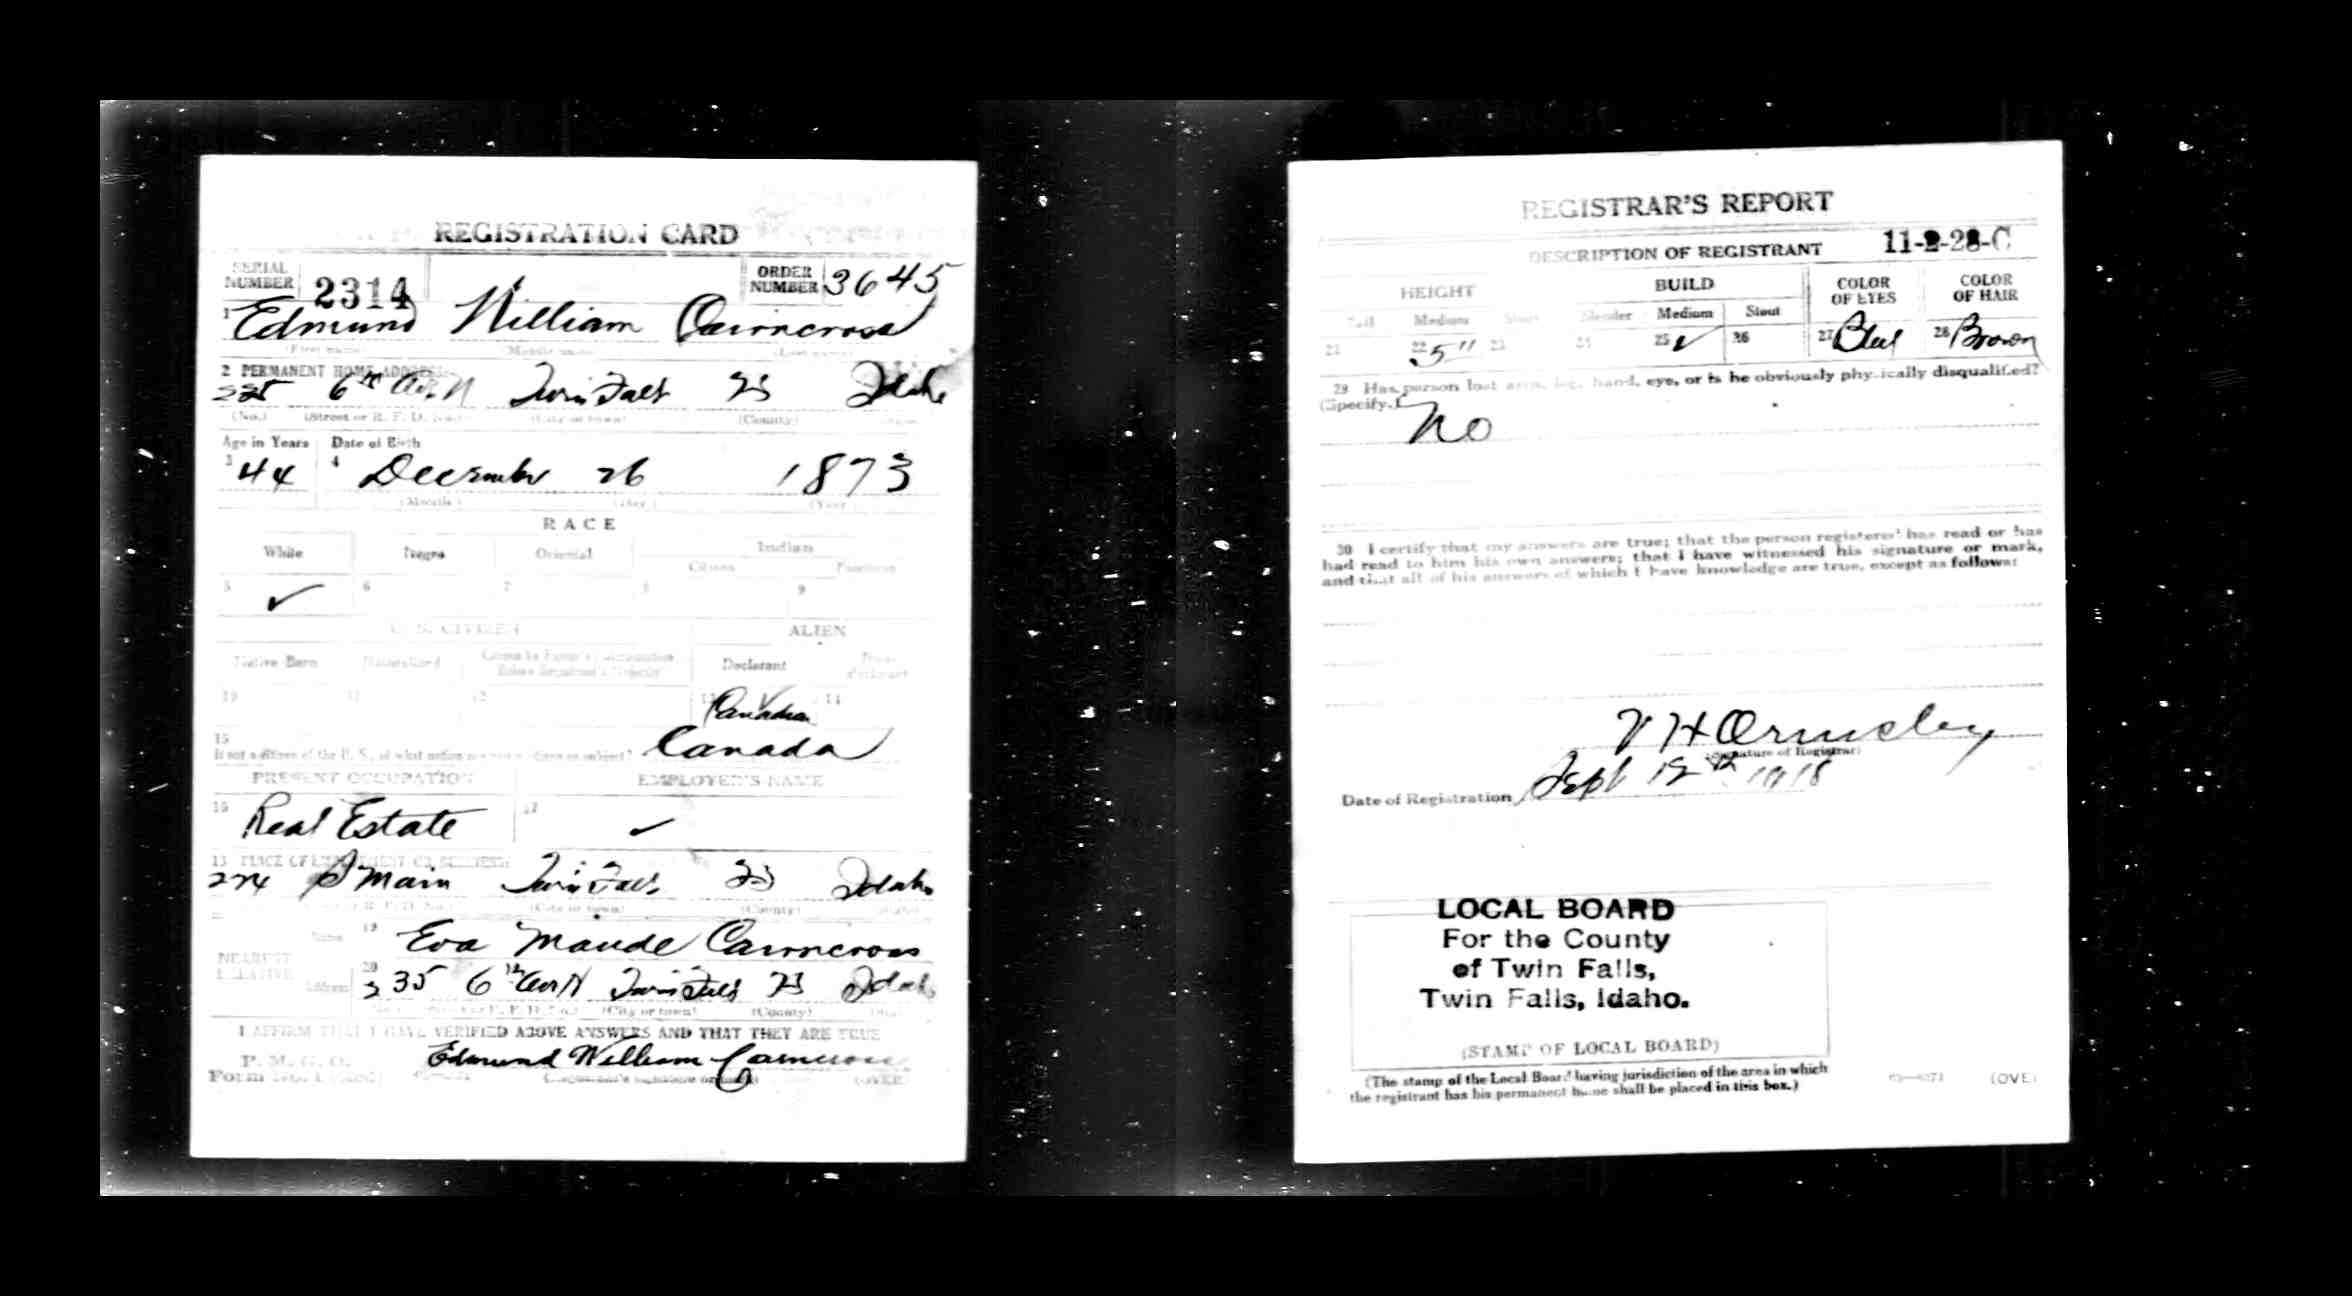 REGISTRATION CARD
SERIAL NUMBER 2314 ORDER NUMBER 3645
1 Edmund William Cairncross
(First name) (Middle name) (Last name)
2 PERMANENT HOME ADDRESS:
6th Ave N Twin Falls Idaho
(No.) (Street or R. F. D. No.) (City or town) (County)
Age in Years Date of Birth
3 44 4 December 26 1873
(Month) (Day) (Year)
RACE
White Negro Oriental Indian
Citizen
5 ✓ 6 7 8 9
U. S. CITIZEN ALIEN
Native Born Naturalized Declarant
10 11 12 13 14
Canadian
15
If not a citizen of the U. S., of what nation are you a citizen or subject? Canada
PRESENT OCCUPATION EMPLOYER'S NAME
16 Real Estate 17 ✓
PLACE OF EMPLOYMENT OR BUSINESS:
224 S Main Twin Falls Idaho
(City or town) (County)
NEAREST RELATIVE
Name 19 Eva Maude Cairncross
Address 20 235 6th Ave N Twin Falls Idaho
(City or town) (County)
I AFFIRM THAT I HAVE VERIFIED ABOVE ANSWERS AND THAT THEY ARE TRUE
P. M. G. O.
Form No. 1 Edmund William Cairncross
(OVER)
REGISTRAR'S REPORT
11-2-28-C
DESCRIPTION OF REGISTRANT
HEIGHT BUILD COLOR OF EYES COLOR OF HAIR
Tall Medium Short Slender Medium Stout
21 22 5" 23 24 25 ✓ 26 27 Blue 28 Brown
29 Has person lost arm, leg, hand, eye, or is he obviously physically disqualified?
(Specify.) No
30 I certify that my answers are true; that the person registered has read or has
had read to him his own answers; that I have witnessed his signature or mark,
and that all of his answers of which I have knowledge are true, except as follows:
Ormsley
(Signature of Registrar)
Date of Registration Sept 12th 1918
LOCAL BOARD
For the County
of Twin Falls,
Twin Falls, Idaho.
(STAMP OF LOCAL BOARD)
(The stamp of the Local Board having jurisdiction of the area in which
the registrant has his permanent home shall be placed in this box.)
(OVE